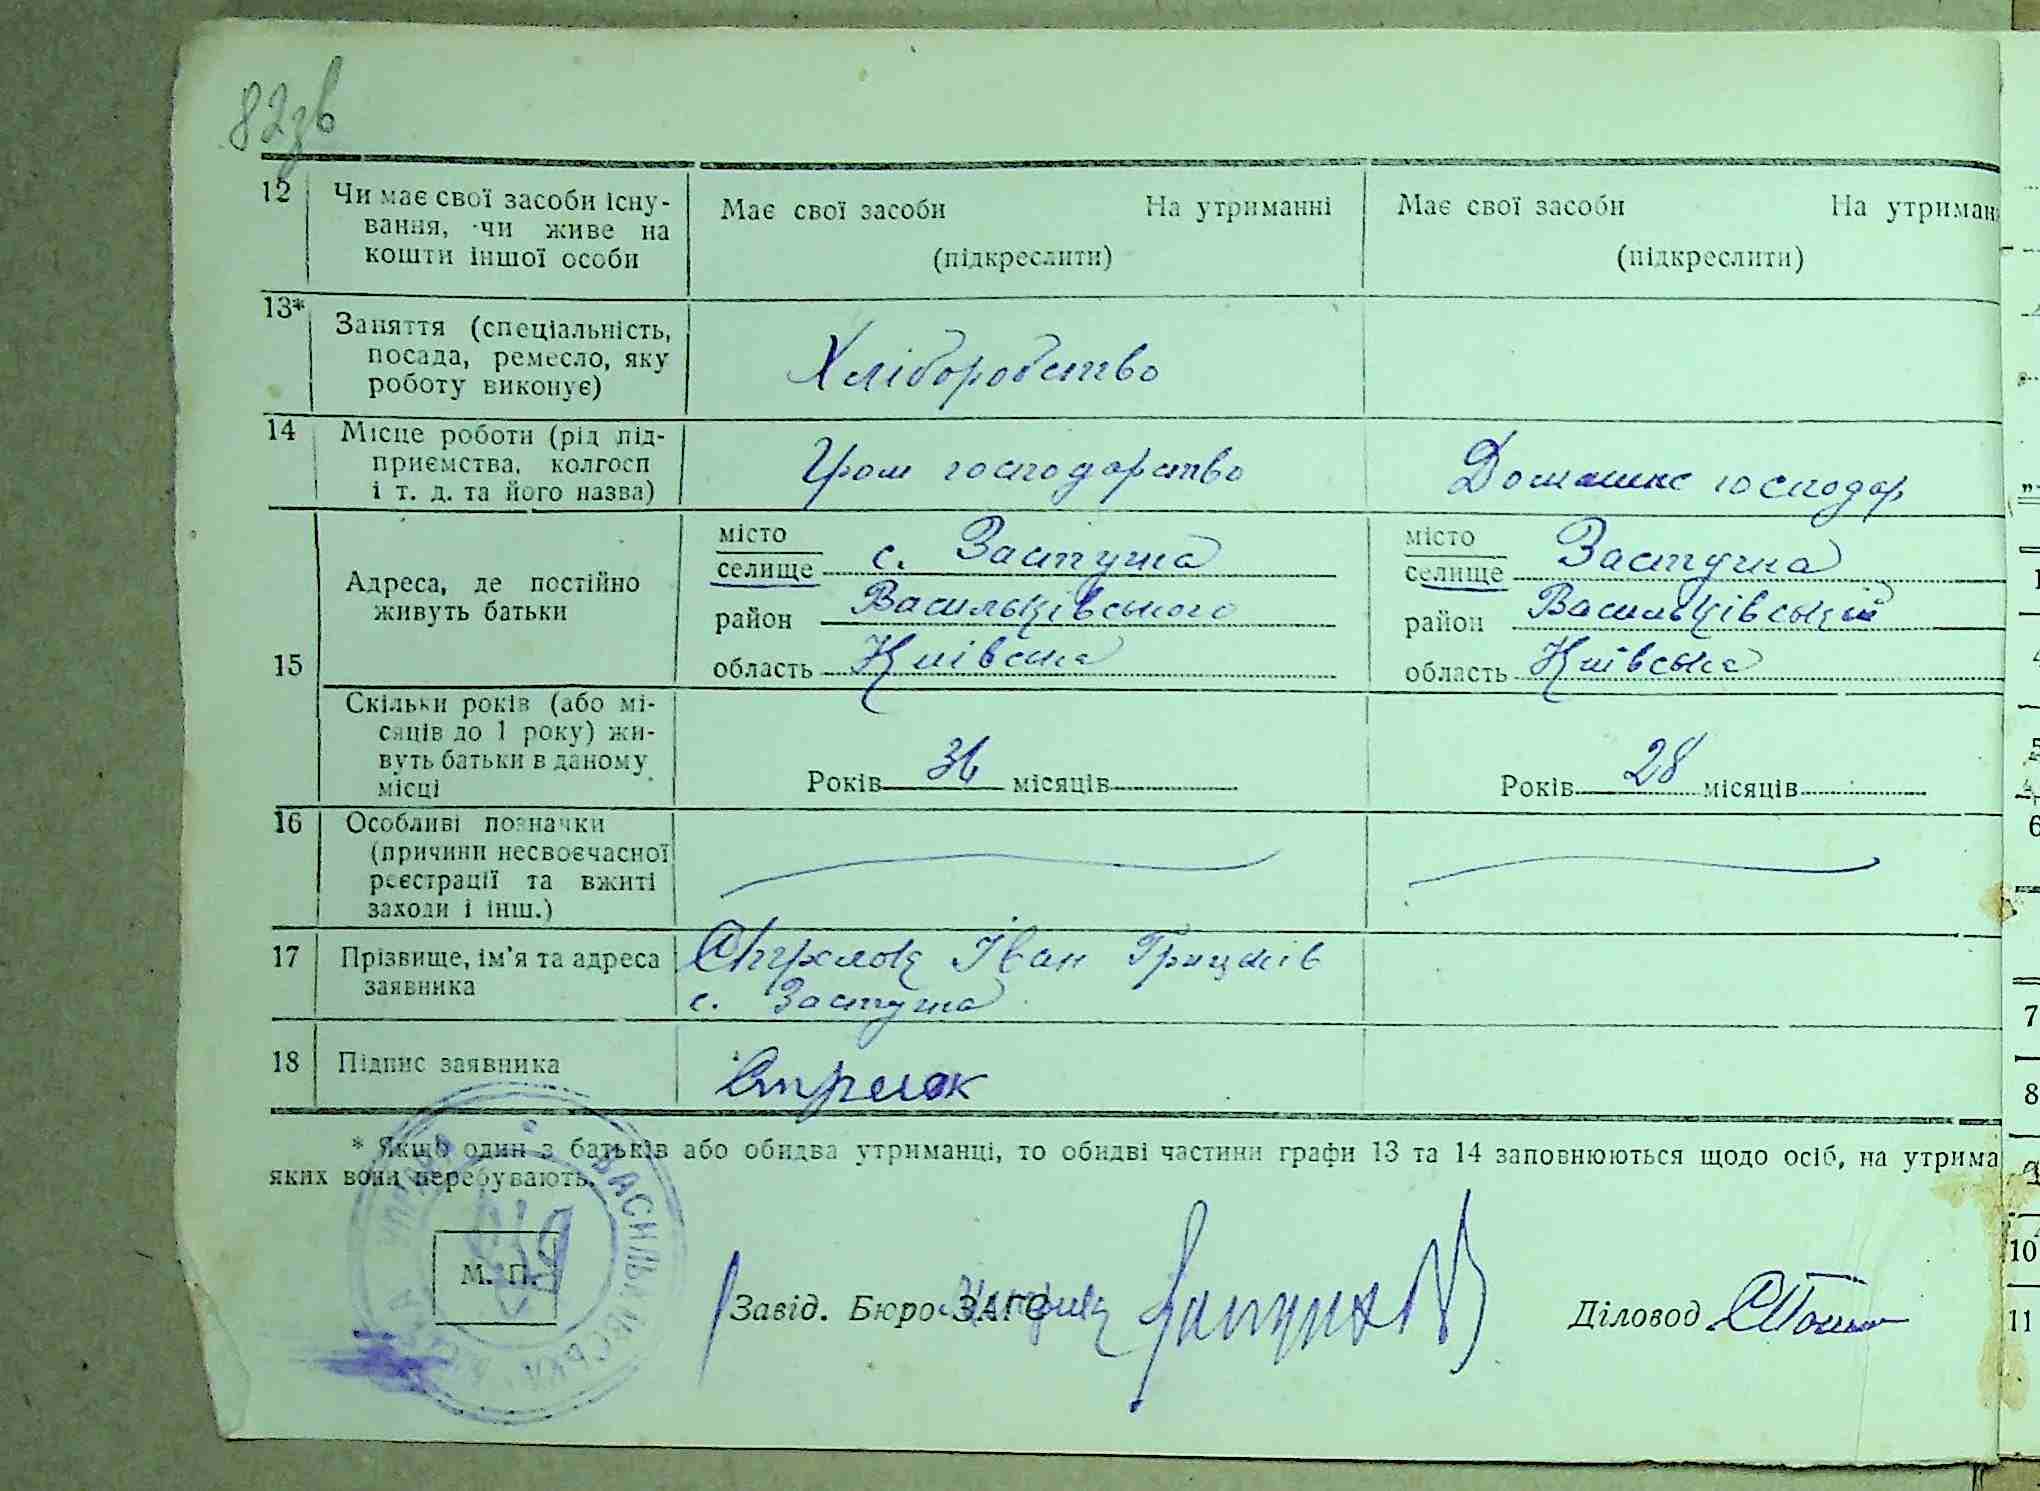 82зв
12 Чи має свої засоби існу-
вання, чи живе на
кошти іншої особи
Має свої засоби На утриманні
(підкреслити)
Має свої засоби На утриман
(підкреслити)
13* Заняття (спеціальність,
посада, ремесло, яку
роботу виконує)
Хліборобство
14 Місце роботи (рід під-
приємства, колгосп
і т. д. та його назва)
Гром господарство
Домашнє господар
15
Адреса, де постійно
живуть батьки
місто
селище с. Застугна
район Васильківського
область Київська
місто
селище Застугна
район Васильківський
область Київська
Скільки років (або мі-
сяців до 1 року) жи-
вуть батьки в даному
місці
Років 36 місяців
Років 28 місяців
16 Особливі позначки
(причини несвоєчасної
реєстрації та вжиті
заходи і інш.)
17 Прізвище, ім'я та адреса
заявника
Іван Грицьків
с. Застугна
18 Підпис заявника
* Якщо один з батьків або обидва утриманці, то обидві частини графи 13 та 14 заповнюються щодо осіб, на утрима
яких вони перебувають.
М. П.
Завід. Бюро ЗАГС
Діловод
УПРАВА ВАСИЛЬКІВСЬКА
5
6
7
8
10
11